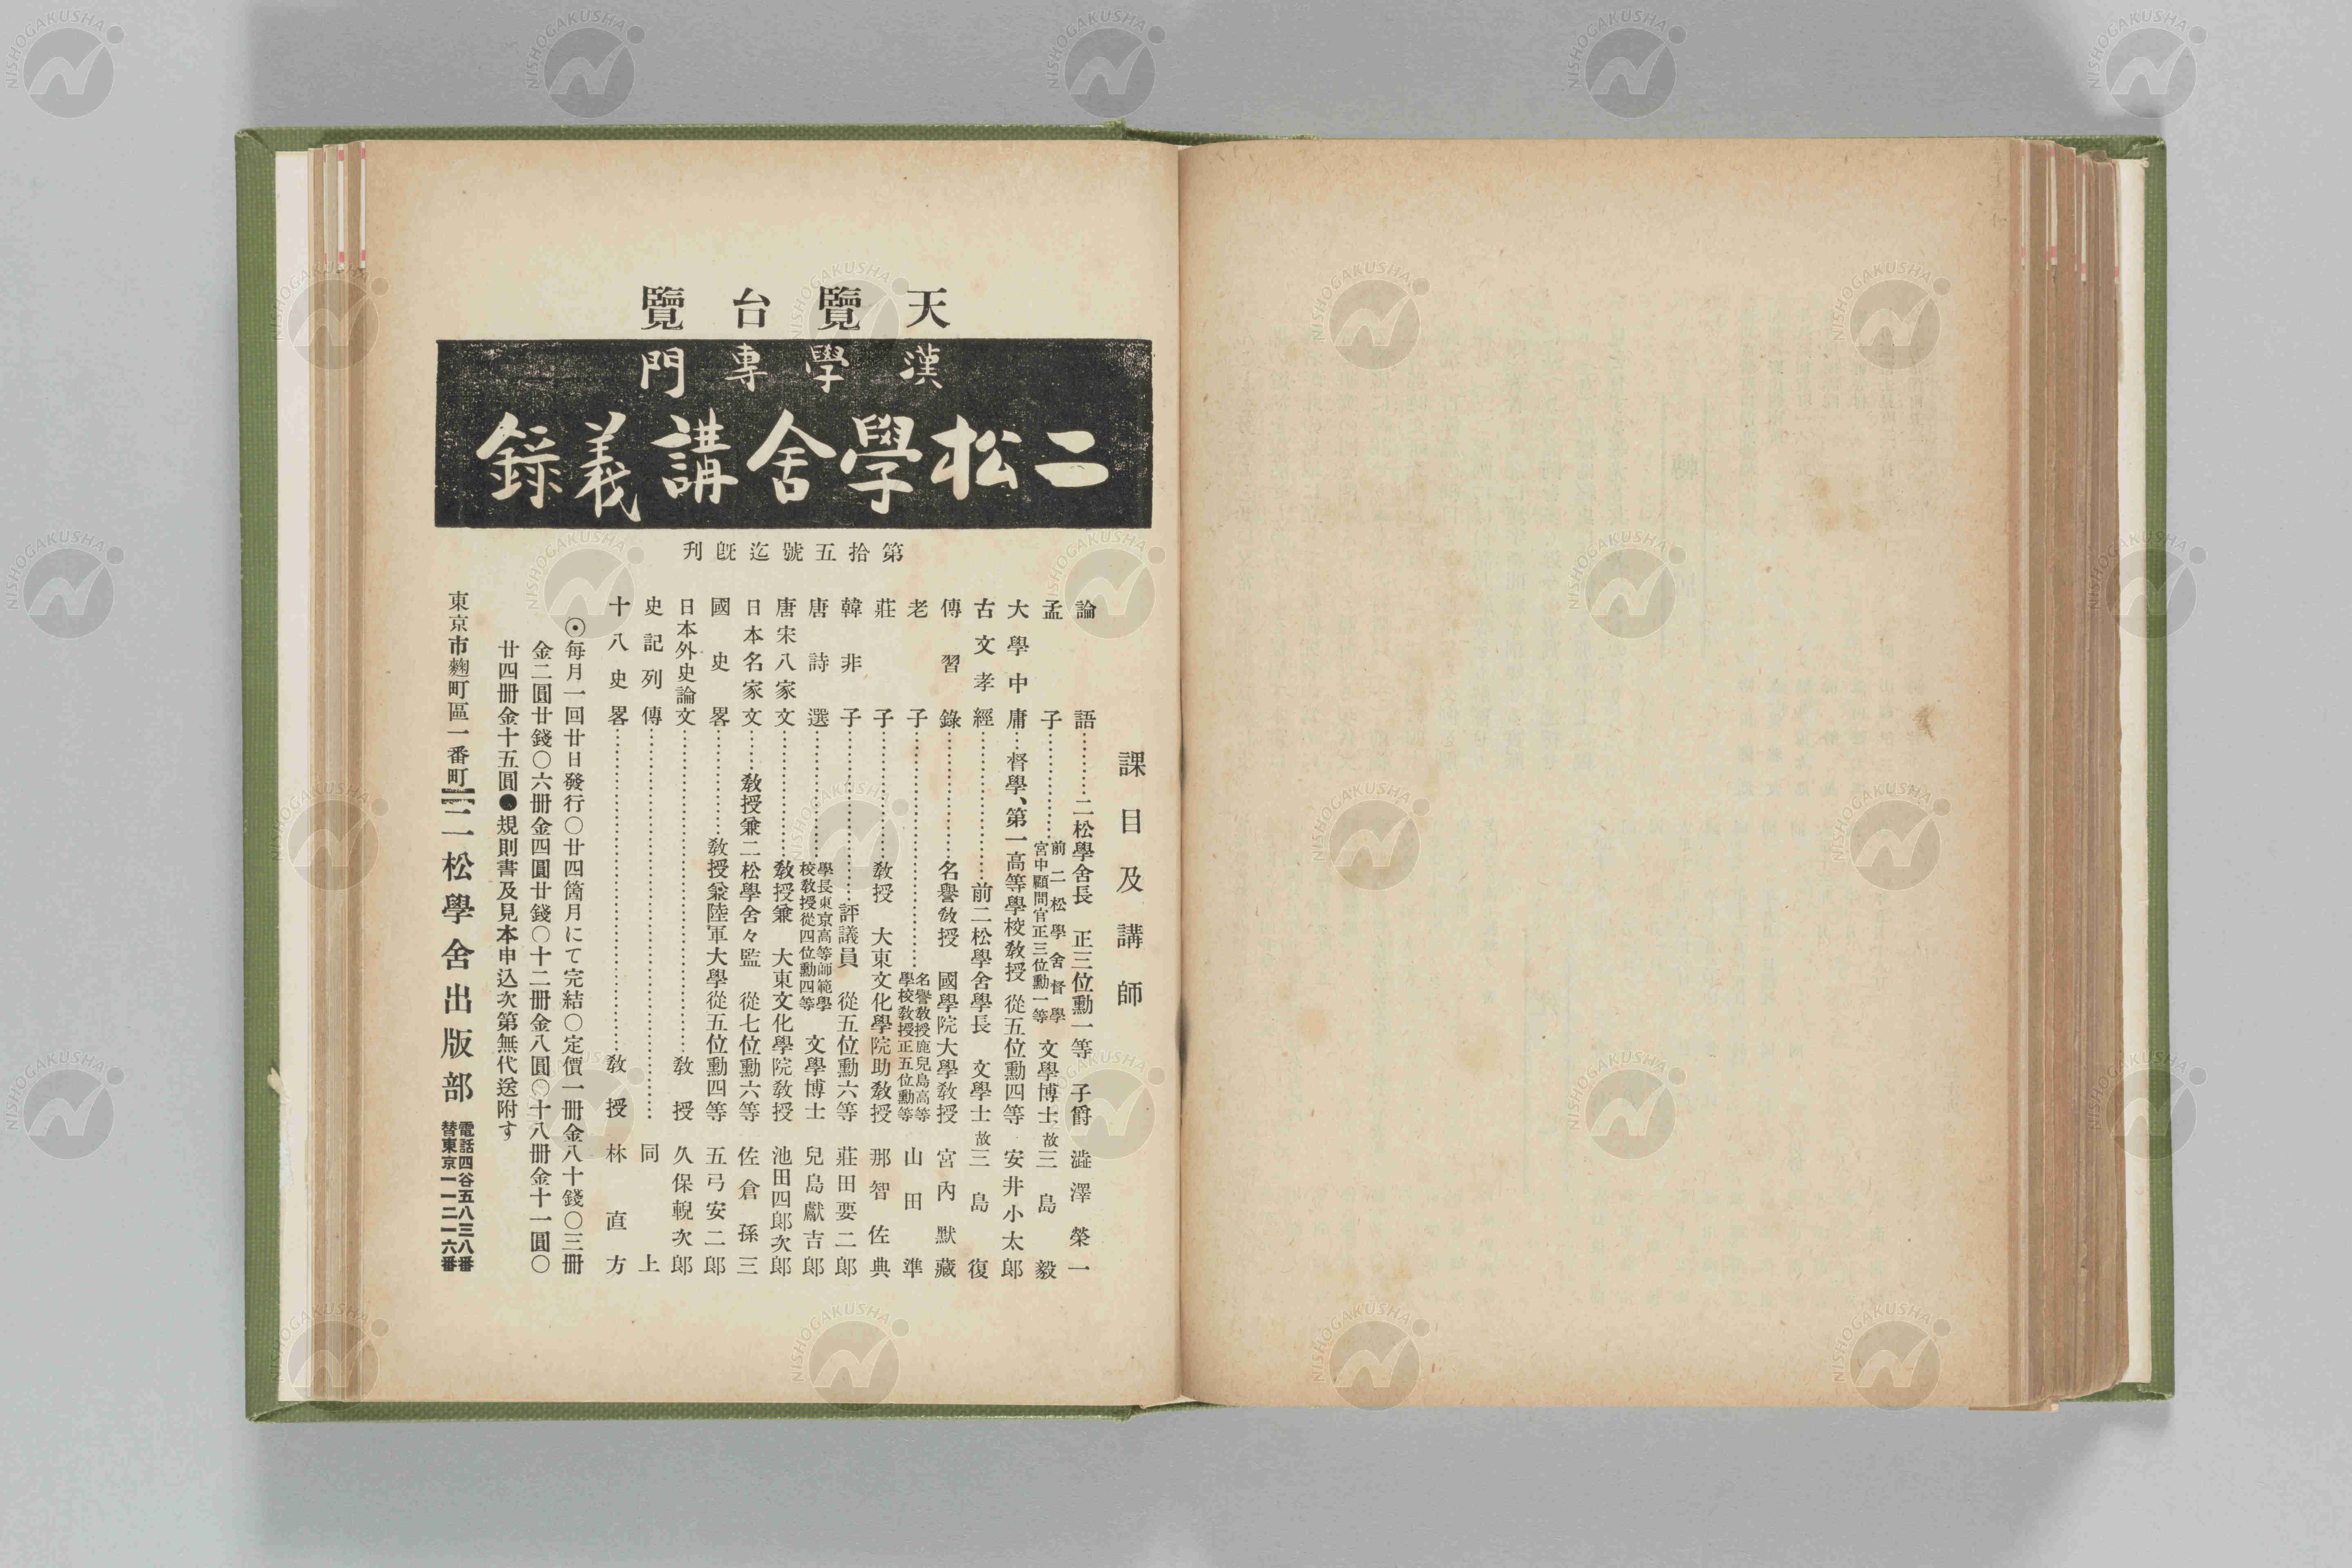 天覽台覽
漢學專門
二松學舍講義錄
第拾五號迄既刊
課目及講師
論語…………二松學舍長 正三位勳一等 子爵 澁澤榮一
孟子…………前二松學舍督學 宮中顧問官正三位勳一等 文學博士 故三島毅
大學中庸…督學、第一高等學校敎授 從五位勳四等 安井小太郎
古文孝經…………前二松學舍學長 文學士 故三島復
傳習錄…………名譽敎授 國學院大學敎授 宮內默藏
老子…………名譽敎授鹿兒島高等學校敎授正五位勳等 山田準
莊子…………敎授 大東文化學院助敎授 那智佐典
韓非子…………評議員 從五位勳六等 莊田要二郎
唐詩選…………學長東京高等師範學校敎授從四位勳四等 文學博士 兒島獻吉郎
唐宋八家文…………敎授兼 大東文化學院敎授 池田四郎次郎
日本名家文……敎授兼二松學舍々監 從七位勳六等 佐倉孫三
國史畧…………敎授兼陸軍大學從五位勳四等 五弓安二郎
日本外史論文…………敎授 久保輗次郎
史記列傳…………同上
十八史畧…………敎授 林直方
⦿每月一回廿日發行〇廿四箇月にて完結〇定價一册金八十錢〇三册
金二圓廿錢〇六册金四圓廿錢〇十二册金八圓〇十八册金十一圓〇
廿四册金十五圓●規則書及見本申込次第無代送附す
東京市麴町區一番町 二松學舍出版部 電話四谷五八三八番
替東京一一二一六番